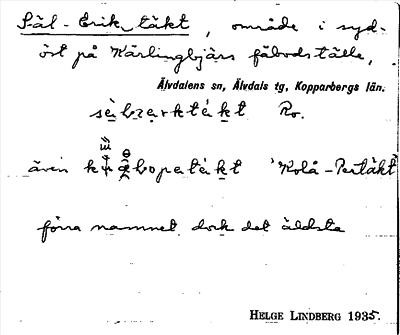 Säl-Erik täkt, område i syd-
öst på Kärlingbjärs fäbodställe,
Älvdalens sn, Älvdals tg, Kopparbergs län.
Ro.
även 'Kolå-Pertäkt'
förra namnet dock det äldsta
HELGE LINDBERG 1935.